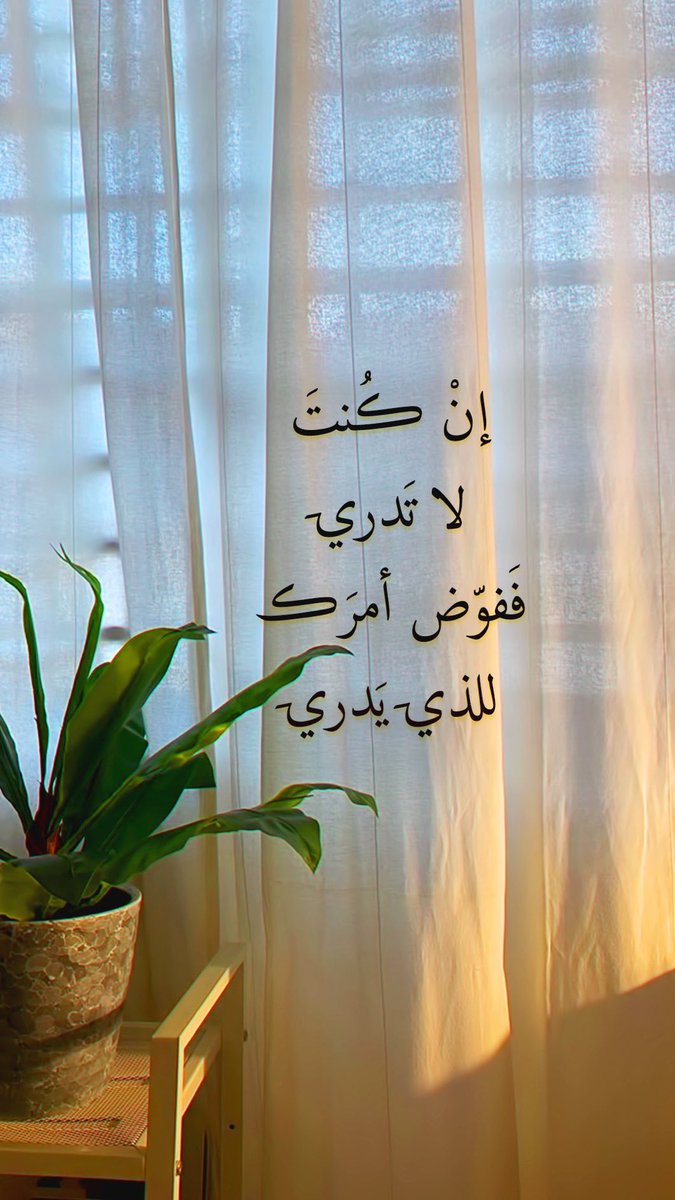 إنْ كُنتَ
لا تَدري
فَفوّض أمرَك
للذي يَدري